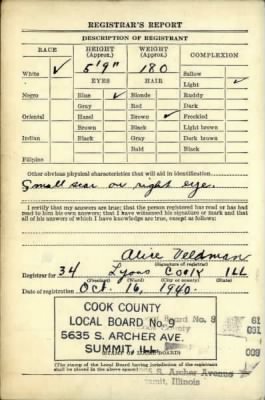 REGISTRAR'S REPORT
DESCRIPTION OF REGISTRANT
RACE HEIGHT (Approx.) WEIGHT (Approx.) COMPLEXION
White ✓ 5'9" 180 Sallow
EYES HAIR Light ✓
Negro Blue ✓ Blonde Ruddy
Gray Red Dark
Oriental Hazel Brown ✓ Freckled
Brown Black Light brown
Indian Black Gray Dark brown
Bald Black
Filipino
Other obvious physical characteristics that will aid in identification
Small scar over right eye.
I certify that my answers are true; that the person registered has read or has had read to him his own answers; that I have witnessed his signature or mark and that all of his answers of which I have knowledge are true, except as follows:
Alice Veldman
(Signature of registrar)
Registrar for 34 Lyons Cook Ill
(Precinct) (Ward) (City or county) (State)
Date of registration Oct. 16, 1940.
COOK COUNTY
LOCAL BOARD No. 9
5635 S. ARCHER AVE.
SUMMIT, ILL.
Board No. 9 61
031
009
(STAMP OF LOCAL BOARD)
(The stamp of the Local Board having jurisdiction of the registrant shall be placed in the above space)
S. Archer Avenue
Summit, Illinois